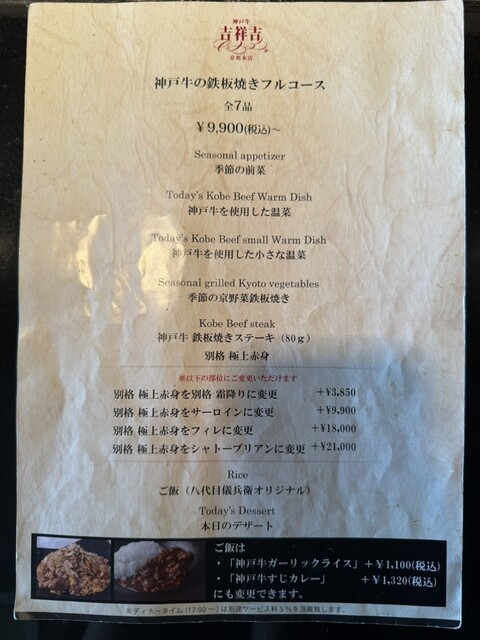 神戸牛
吉祥吉
京都本店
神戸牛の鉄板焼きフルコース
全7品
￥9,900(税込)～
Seasonal appetizer
季節の前菜
Today's Kobe Beef Warm Dish
神戸牛を使用した温菜
Today's Kobe Beef small Warm Dish
神戸牛を使用した小さな温菜
Seasonal grilled Kyoto vegetables
季節の京野菜鉄板焼き
Kobe Beef steak
神戸牛 鉄板焼きステーキ（80g）
別格 極上赤身
※以下の部位にご変更いただけます
別格 極上赤身を別格 霜降りに変更 +¥3,850
別格 極上赤身をサーロインに変更 +¥9,900
別格 極上赤身をフィレに変更 +¥18,000
別格 極上赤身をシャトーブリアンに変更 +¥21,000
Rice
ご飯（八代目儀兵衛オリジナル）
Today's Dessert
本日のデザート
ご飯は
・「神戸牛ガーリックライス」+￥1,100(税込)
・「神戸牛すじカレー」 +￥1,320(税込)
にも変更できます。
※ディナータイム(17:00～)は別途サービス料5％を頂戴致します。